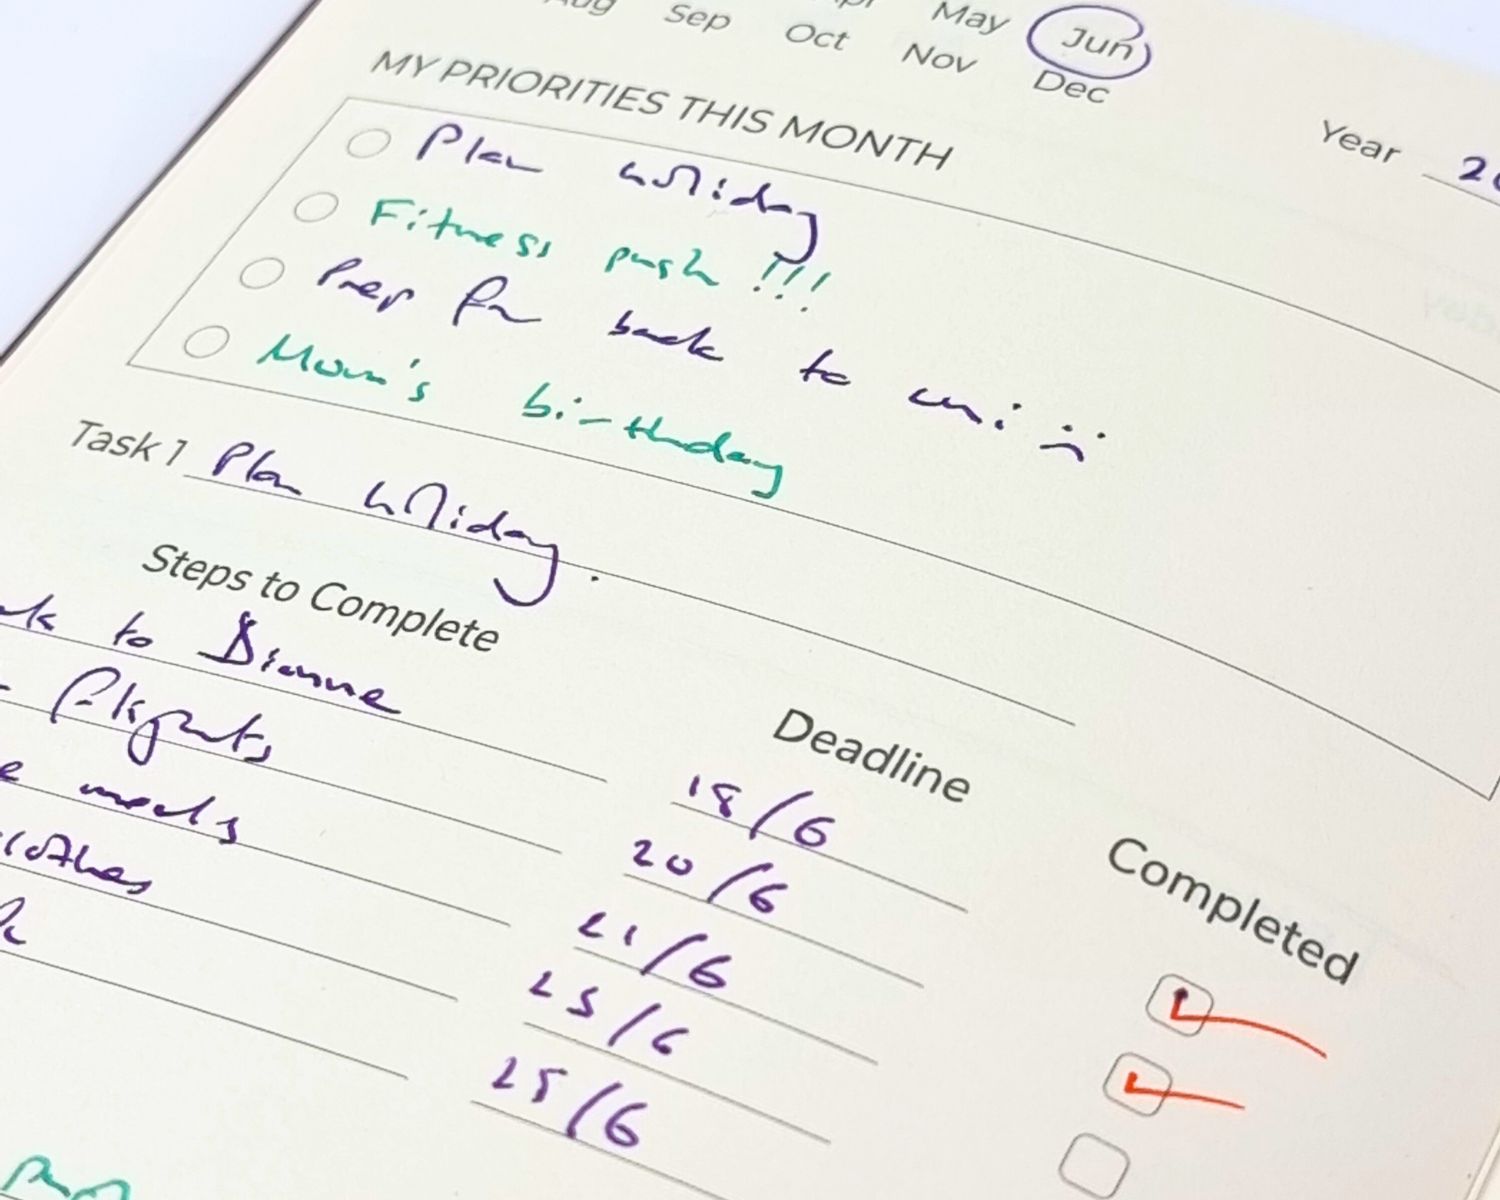 Aug Sep Oct Nov Dec
May Jun
MY PRIORITIES THIS MONTH
Year
Plan holiday
Fitness push !!!
Prep for back to uni :(
Mom's birthday
Task 1 Plan holiday.
Steps to Complete Deadline Completed
to Dianne 18/6
flights 20/6
meals 21/6
clothes 25/6
25/6